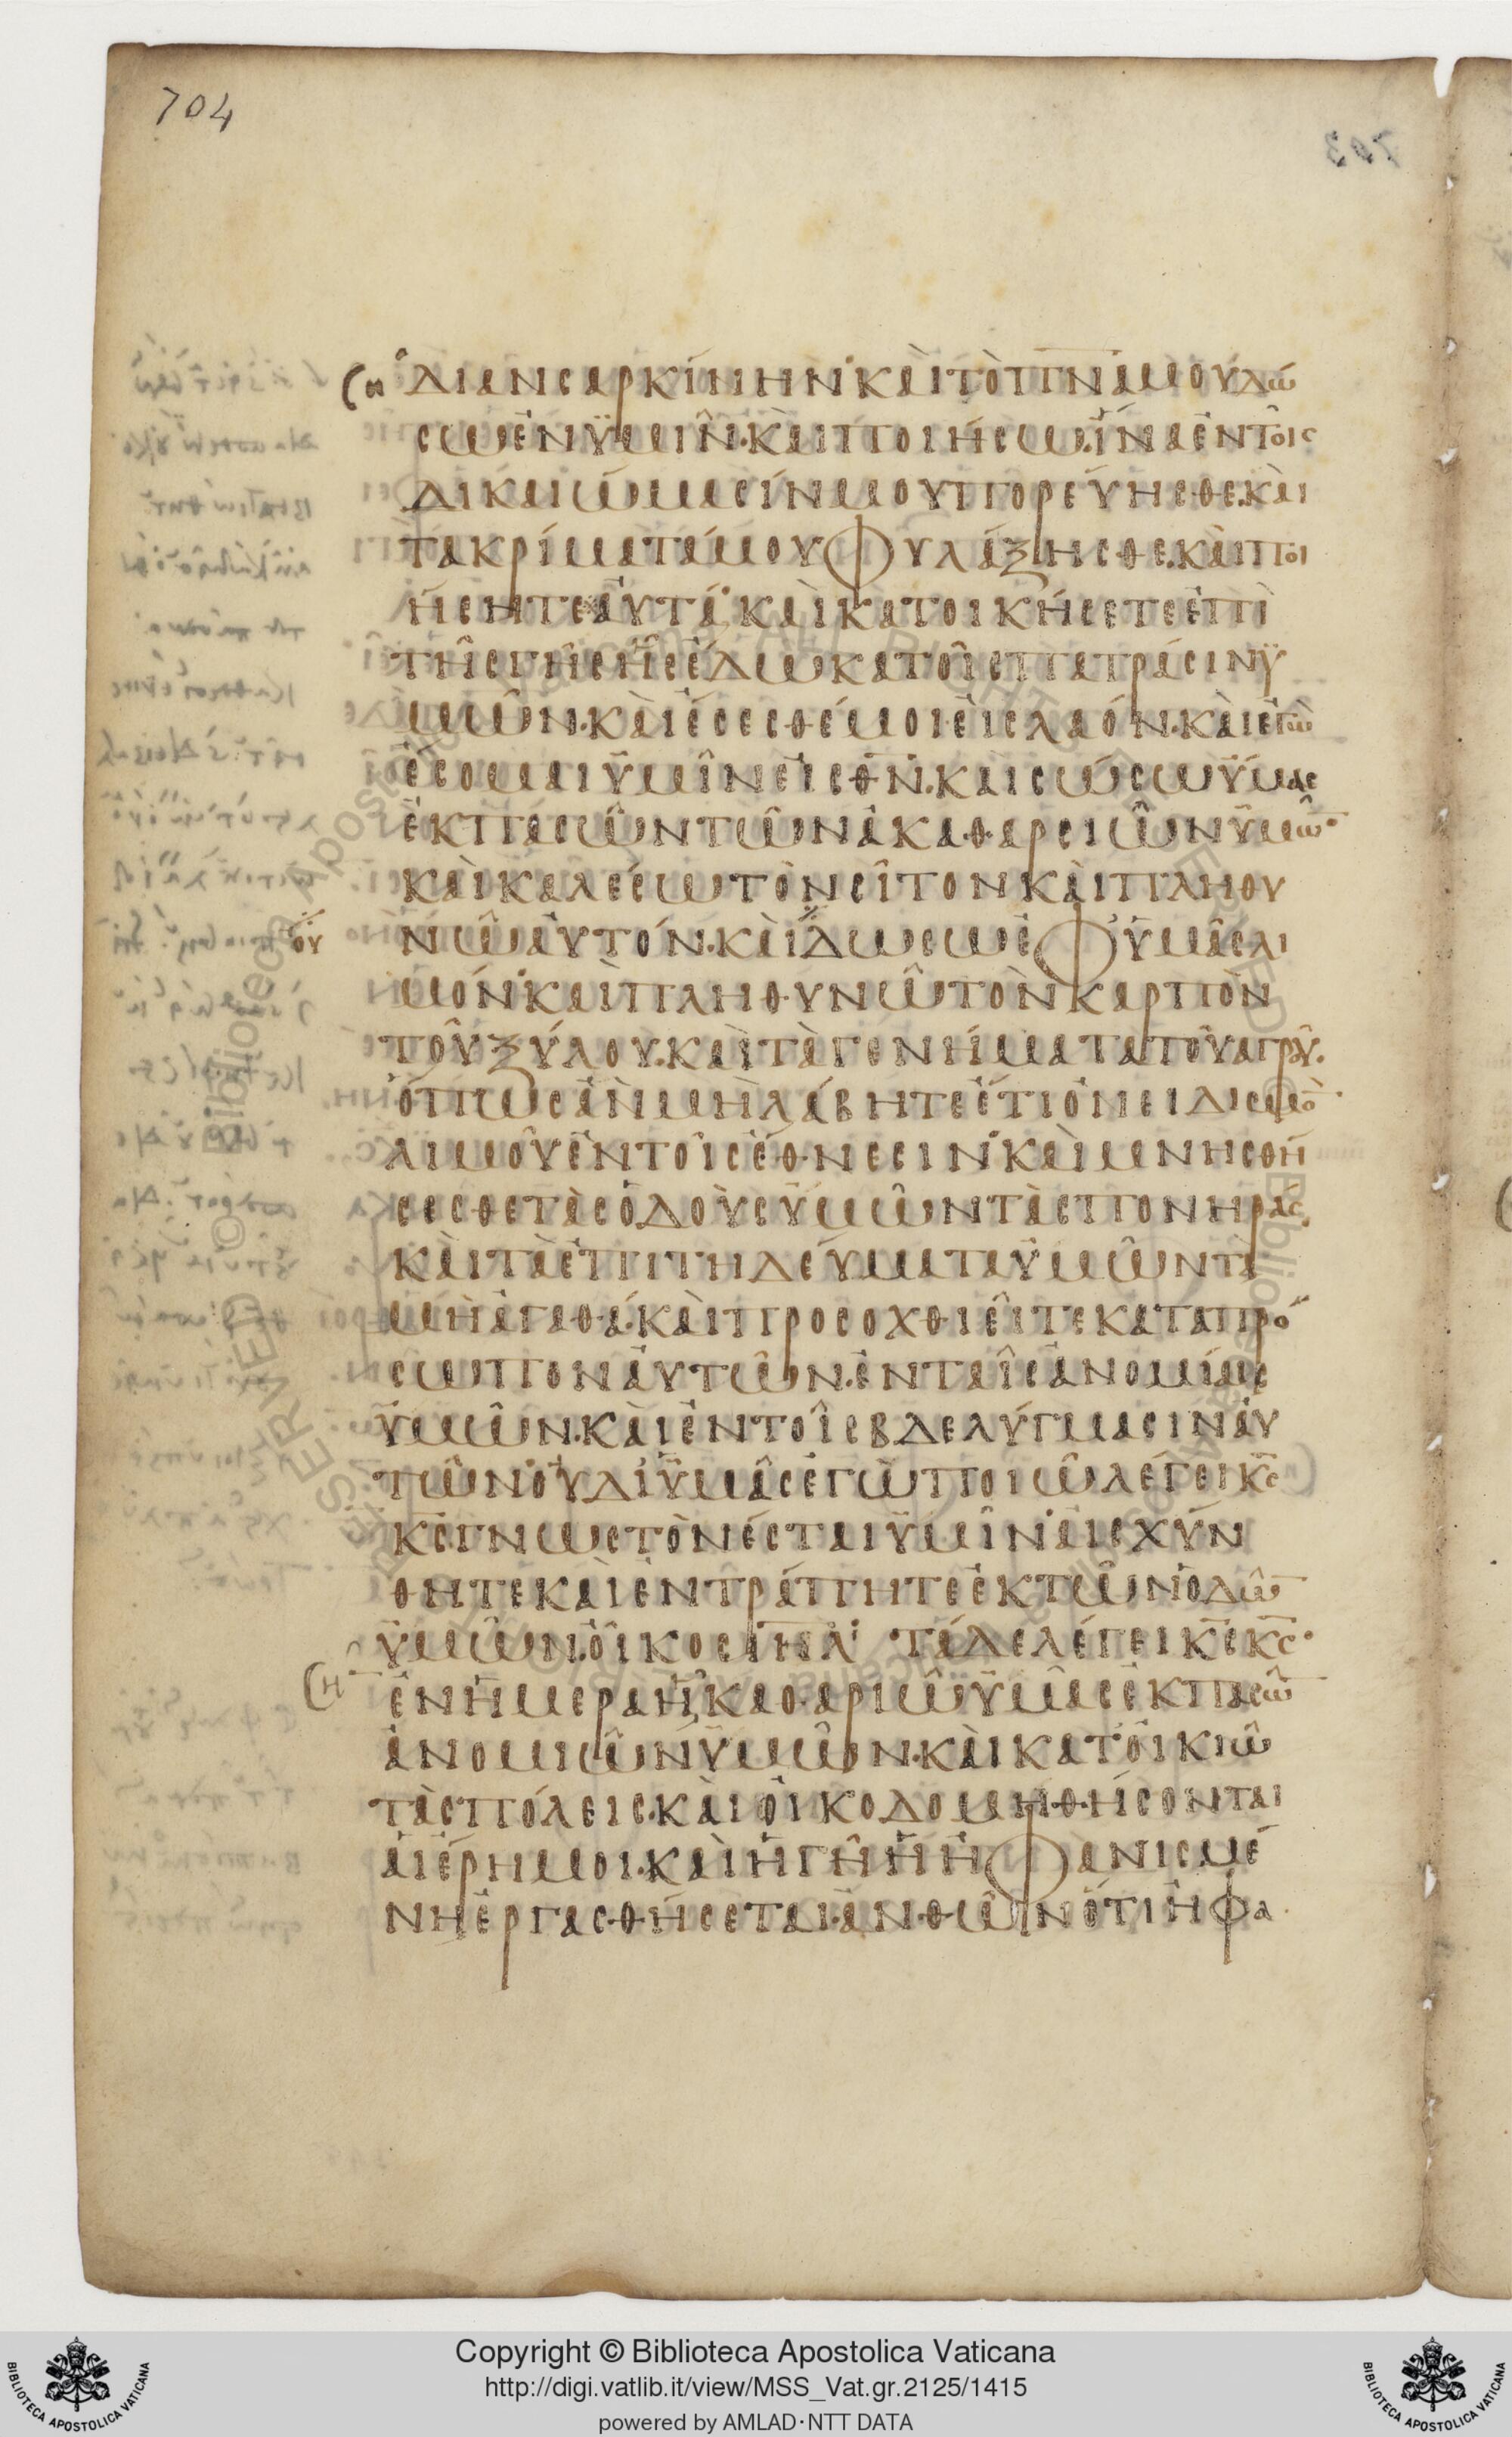 704
δίαν σαρκίνην· καὶ τὸ πνα μου δώ
σω ἐν ὑμῖν· καὶ ποιήσω ἵνα ἐν τοῖς
δικαιώμασίν μου πορεύησθε· καὶ
τὰ κρίματά μου φυλάξησθε· καὶ ποι
ήσητε αὐτά· καὶ κατοικήσετε ἐπὶ
τῆς γῆς ἧς ἔδωκα τοῖς πατράσιν ὑ
μῶν· καὶ ἔσεσθέ μοι εἰς λαόν· καὶ ἐγὼ
ἔσομαι ὑμῖν εἰς θν· καὶ σώσω ὑμας
ἐκ πασῶν τῶν ἀκαθαρσιῶν ὑμῶ·
καὶ καλέσω τὸν σῖτον καὶ πληθυ
νῶ αὐτόν· καὶ δώσω ἐφ ὑμᾶς λι
ου
μόν· καὶ πληθυνῶ τὸν καρπὸν
τοῦ ξύλου· καὶ τὰ γενήματα τοῦ αγροῦ·
ὅπως ἂν μὴ λάβητε ἔτι ὀνειδισμὸ
λιμοῦ ἐν τοῖς ἔθνεσιν· καὶ μνησθή
σεσθε τὰς ὁδοὺς ὑμῶν τὰς πονηράς,
καὶ τὰ ἐπιτηδεύματα ὑμῶν τὰ
μὴ ἀγαθά· καὶ προσοχθιεῖτε κατα πρό
σωπον αὐτῶν· ἐν ταῖς ἀνομίαις
ὑμῶν· καὶ ἐν τοῖς βδελύγμασιν αὐ
τῶν· οὐ δι ὑμᾶς ἐγὼ ποιῶ λέγει κς
κς· γνωστὸν ἔσται ὑμῖν· αἰσχύν
θητε καὶ ἐντράπητε ἐκ τῶν ὁδῶ
ὑμῶν οἶκος ιηλ· τάδε λέγει κς κς·
ἐν ἡμέρα ἧ καθαριῶ ὑμᾶς ἐκ πασῶ
ἀνομιῶν ὑμῶν· καὶ κατοικιῶ
τὰς πόλεις· καὶ οἰκοδομηθήσονται
αἱ ἔρημοι· καὶ ἡ γῆ ἡ ἠφανισμέ
νη ἐργασθήσεται· ἀνθ ὧν ὅτι ἠφα
Copyright © Biblioteca Apostolica Vaticana
http://digi.vatlib.it/view/MSS_Vat.gr.2125/1415
powered by AMLAD·NTT DATA
BIBLIOTECA APOSTOLICA VATICANA
BIBLIOTECA APOSTOLICA VATICANA